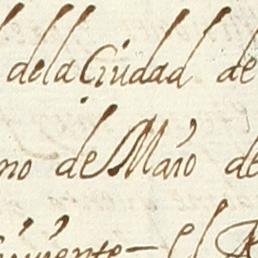 dela Ciudad de
no de Maio de
el